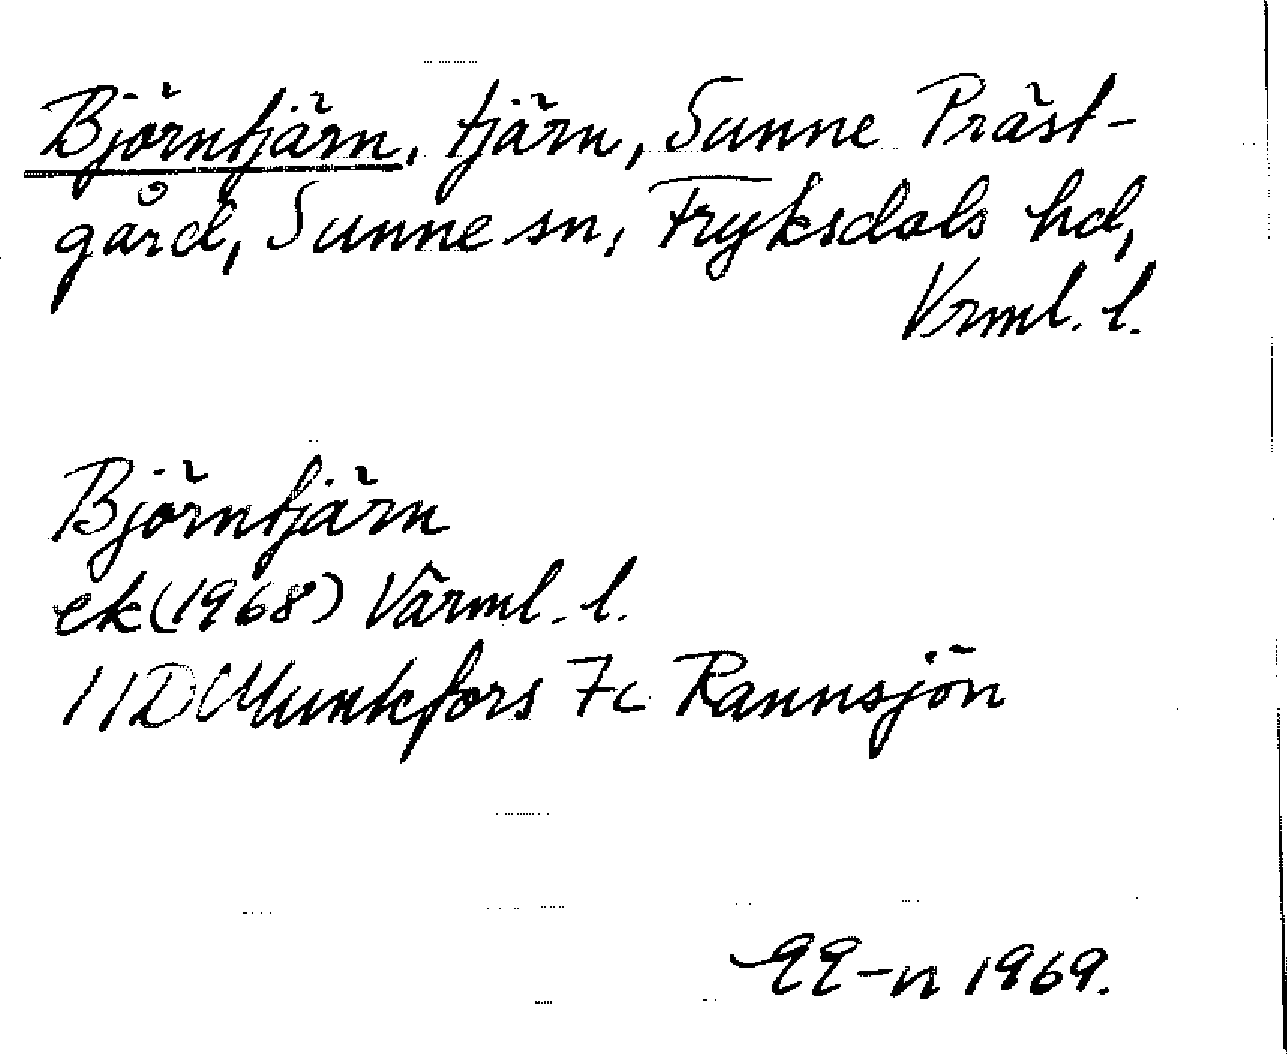 Björntjärn, tjärn, Sunne Präst-
gård, Sunne sn, Fryksdals hd,
Vrml. l.
Björntjärn
ek (1968) Värml. l.
11D Munkfors 7c Rannsjön
EE-n 1969.